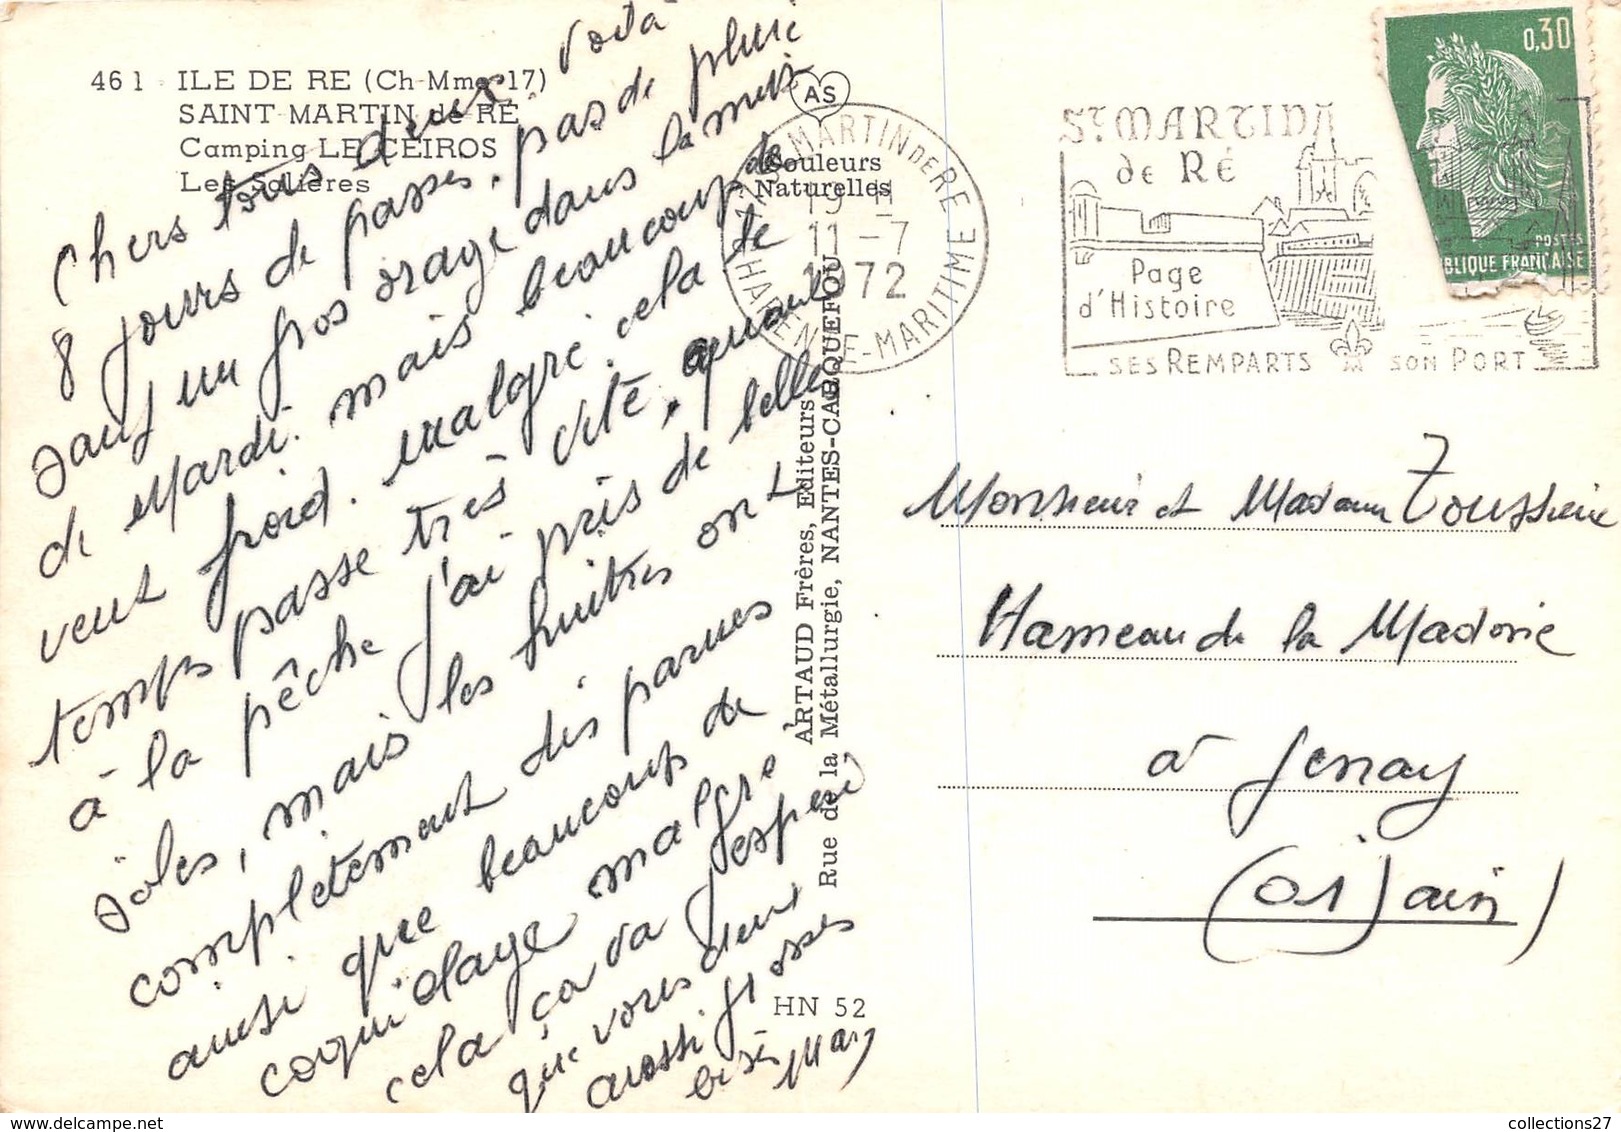 461 ILE DE RE (Ch-Mme-17)
SAINT-MARTIN de RÉ
Camping LE CEIROS
Les Salières
AS
Couleurs
Naturelles
Chers tous deux voilà
8 jours de passés, pas de pluie
sauf un gros orage dans la nuit
de Mardi. mais beaucoup de
vent froid. malgré cela le
temps passe très vite, quant
à la pêche j'ai pris de belles
soles, mais les huitres ont
complètement disparues
ainsi que beaucoup de
coquillage malgré
cela ça va j'espère
que vous deux
aussi grosses
bises Mary
ARTAUD Frères, Editeurs
Rue de la Métallurgie, NANTES-CARQUEFOU
HN 52
17 ST MARTIN DE RE
19 H
11-7
1972
CHARENTE-MARITIME
ST MARTIN
de RÉ
Page
d'Histoire
SES REMPARTS SON PORT
0,30
POSTES
BLIQUE FRANÇAISE
Monsieur et Madame Toussieux
Hameau de la Madone
à Genay
(01) ain)
collections27